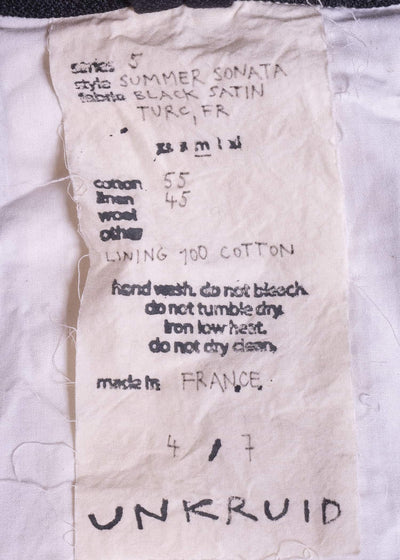 series 5
style SUMMER SONATA
fabric BLACK SATIN
TURC, FR
xs s m l xl
cotton 55
linen 45
wool
other
LINING 100 COTTON
hand wash. do not bleach.
do not tumble dry.
iron low heat.
do not dry clean.
made in FRANCE.
4 / 7
UNKRUID